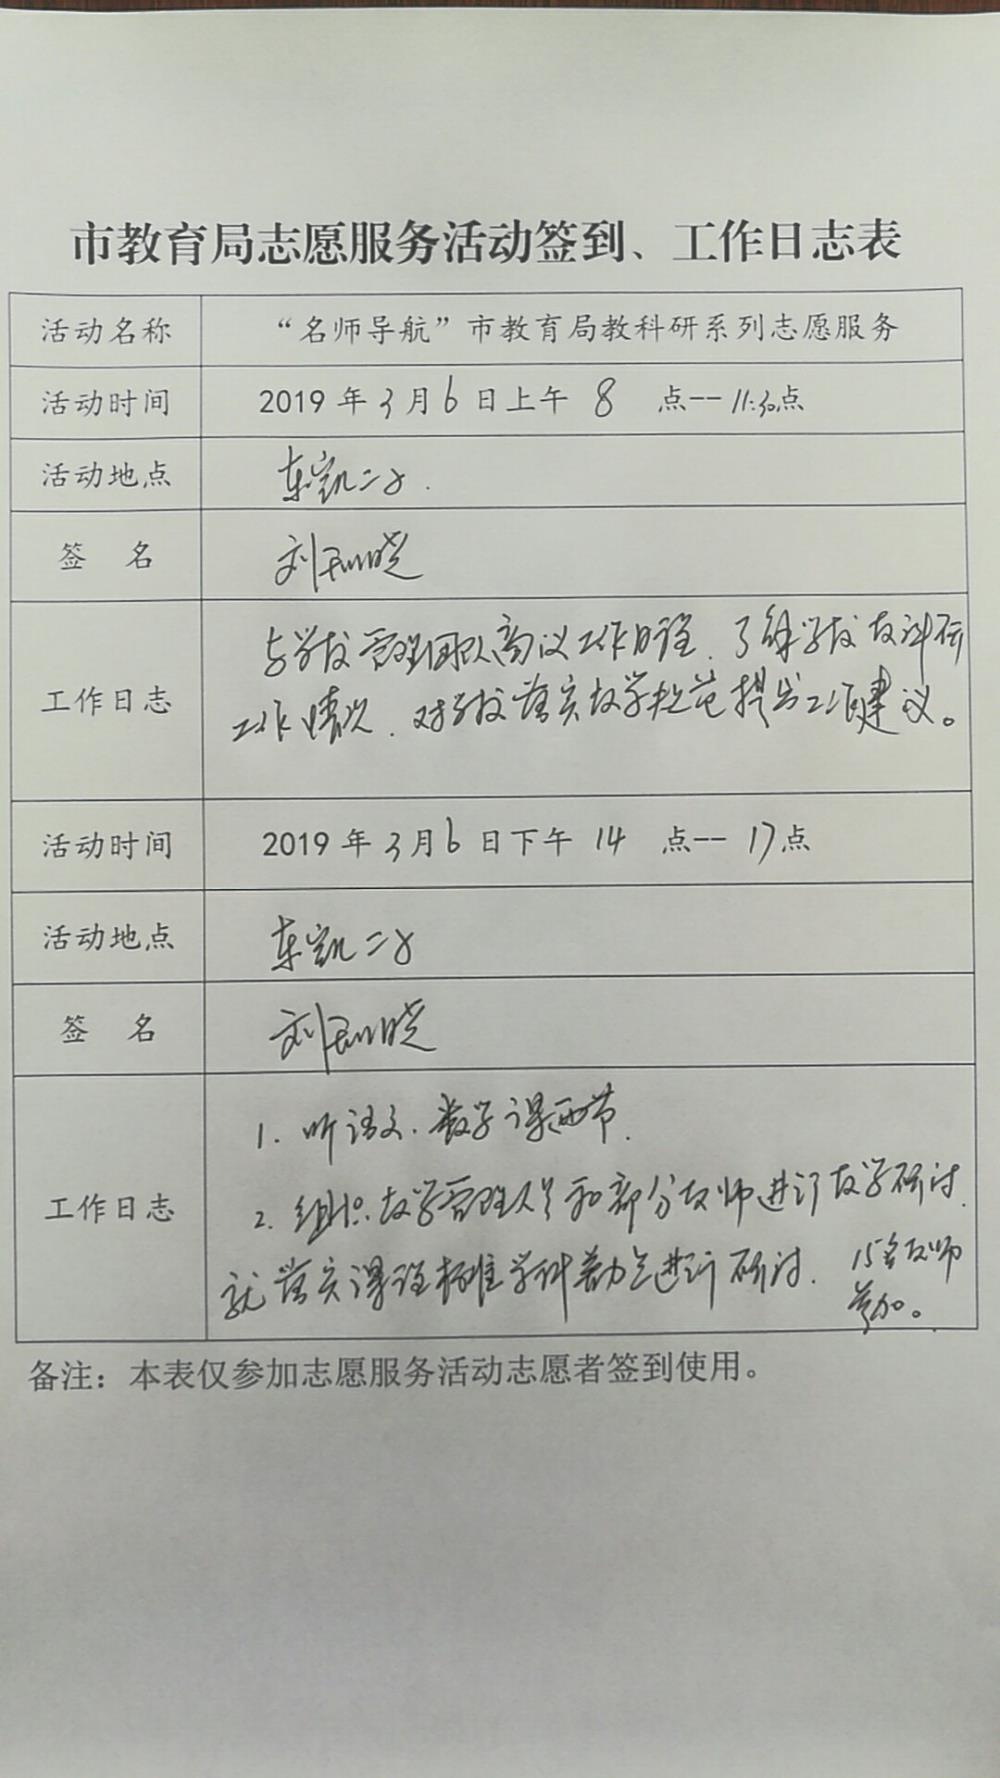 市教育局志愿服务活动签到、工作日志表
活动名称 “名师导航”市教育局教科研系列志愿服务
活动时间 2019年3月6日上午8点--11:30点
活动地点 东凯二小.
签 名 刘晓
工作日志
与学校管理团队商议工作日程、了解学校教科研
工作情况、对学校落实教学规范提出工作建议。
活动时间 2019年3月6日下午14点--17点
活动地点 东凯二小
签 名 刘晓
工作日志
1. 听语文、数学课两节.
2. 组织教学管理人员和部分教师进行教学研讨.
就落实课程标准学科进行研讨. 15名教师
参加。
备注：本表仅参加志愿服务活动志愿者签到使用。